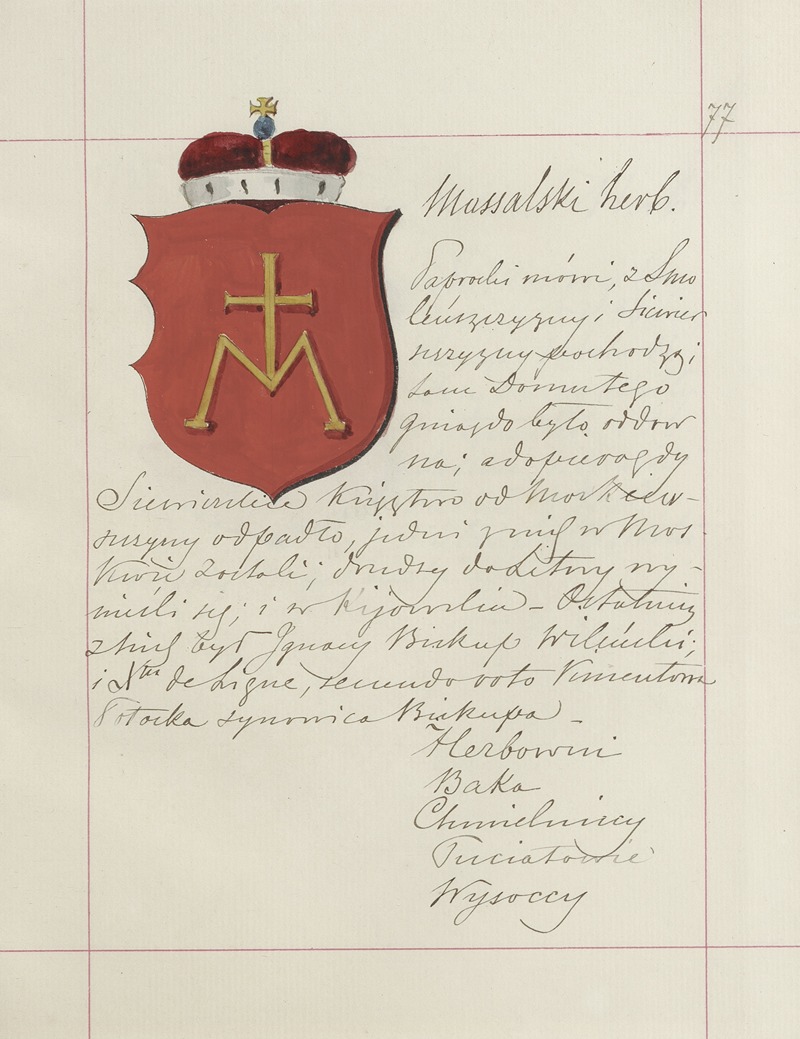 77
Massalski herb.
Paprocki mówi, z Smo
leńszczyzny i Siewier
szczyzny pochodzą i
tam Domu tego
gniazdo było oddaw
na; a dopiero gdy
Siewierskie Księztwo od Moskiew-
szczyzny odpadło, jedni z nich w Mos
kwie zostali; drudzy do Litwy wy-
nieśli się; i w Kijowskie - Ostatnim
z nich był Ignacy Biskup Wileński;
i Xna de Ligne, secundo voto Vincentowa
Potocka synowica Biskupa -
Herbowni
Baka
Chmielniccy
Wysoccy